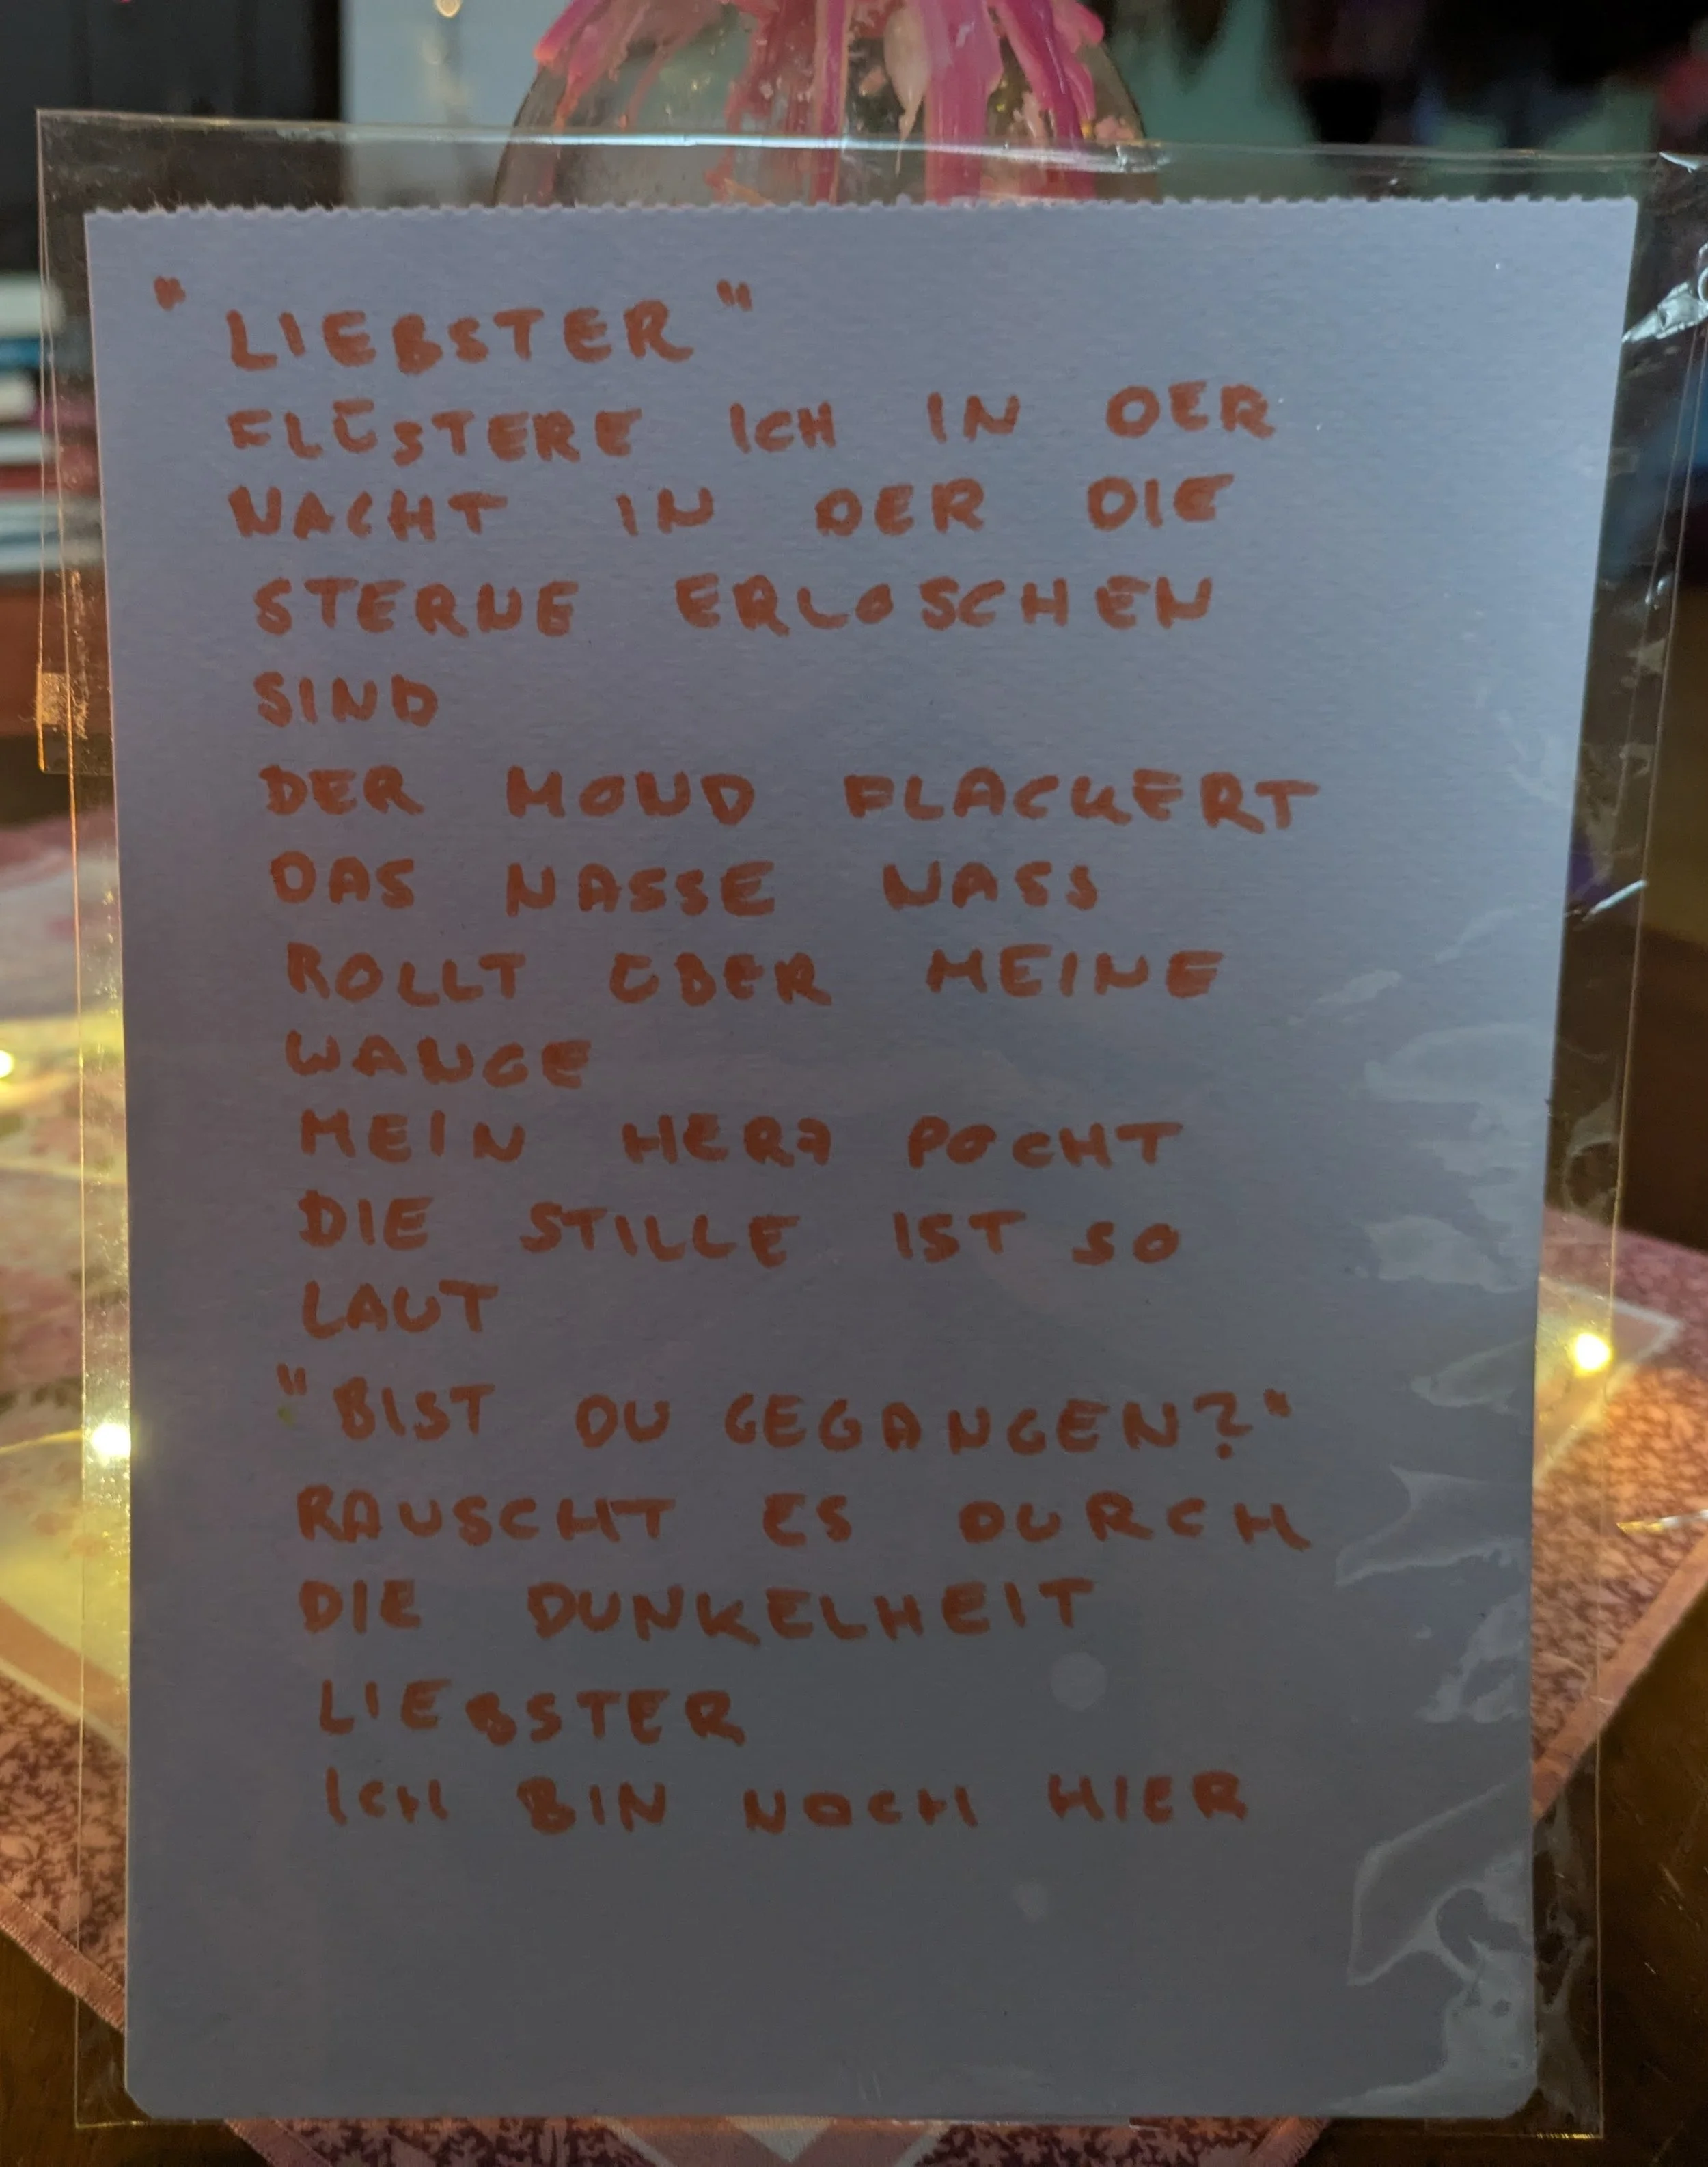 "LIEBSTER"
FLÜSTERE ICH IN DER
NACHT IN DER DIE
STERNE ERLOSCHEN
SIND
DER MOND FLACKERT
DAS NASSE NASS
ROLLT ÜBER MEINE
WANGE
MEIN HERZ POCHT
DIE STILLE IST SO
LAUT
"BIST DU GEGANGEN?"
RAUSCHT ES DURCH
DIE DUNKELHEIT
LIEBSTER
ICH BIN NOCH HIER